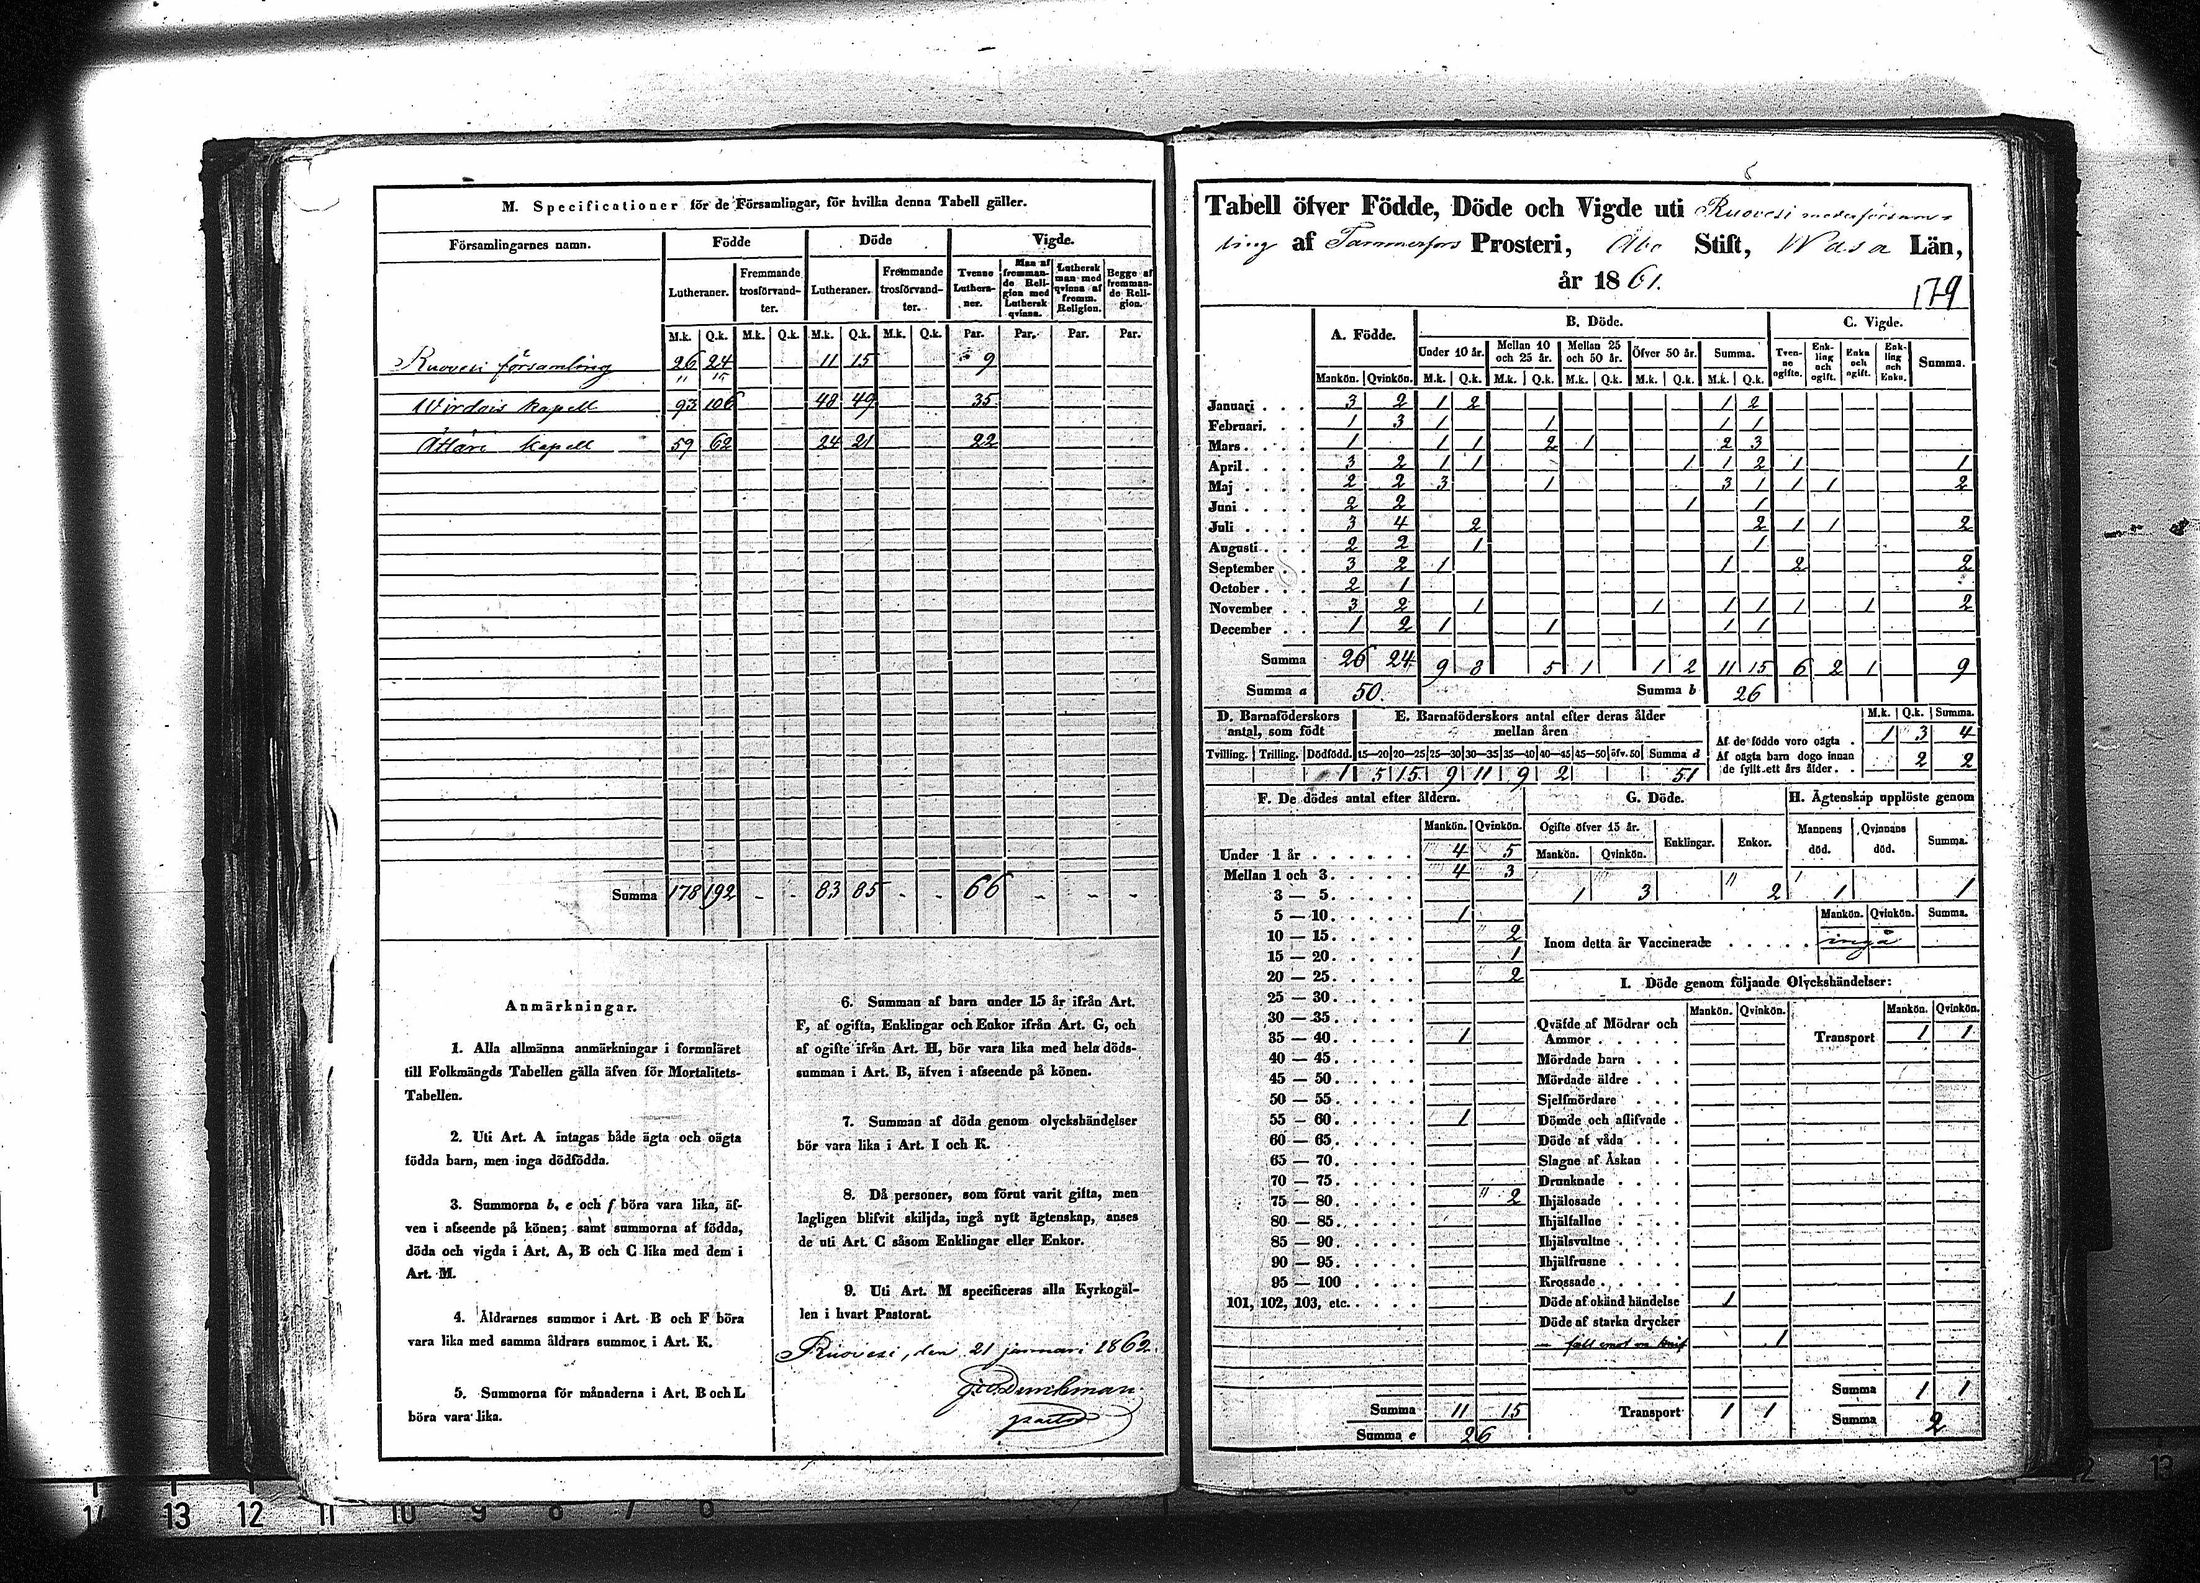 M. Specificationer för de Församlingar, för hvilka denna Tabell gäller.
Församlingarnes namn. Födde Döde Vigde.
Lutheraner. Fremmande trosförvandter. Lutheraner. Fremmande trosförvandter. Tvenne Lutheraner. Man af fremmande Religion med Luthersk qvinna. Luthersk man med qvinna af fremm. Religion. Begge af fremmande Religion.
M.k. Q.k. M.k. Q.k. M.k. Q.k. M.k. Q.k. Par. Par. Par. Par.
Ruovesi församling 26 24 11 15 9
Wirdois kapell 93 106 48 49 35
Ättäri kapell 59 62 24 21 22
Summa 178 192 - - 83 85 - - 66 - - -
Anmärkningar.
1. Alla allmänna anmärkningar i formuläret
till Folkmängds Tabellen gälla äfven för Mortalitets-
Tabellen.
2. Uti Art. A intagas både ägta och oägta
födda barn, men inga dödfödda.
3. Summorna b, e och f böra vara lika, äf-
ven i afseende på könen; samt summorna af födda,
döda och vigda i Art. A, B och C lika med dem i
Art. M.
4. Åldrarnes summor i Art. B och F böra
vara lika med samma åldrars summor i Art. K.
5. Summorna för månaderna i Art. B och L
böra vara lika.
6. Summan af barn under 15 år ifrån Art.
F, af ogifta, Enklingar och Enkor ifrån Art. G, och
af ogifte ifrån Art. H, bör vara lika med hela döds-
summan i Art. B, äfven i afseende på könen.
7. Summan af döda genom olyckshändelser
bör vara lika i Art. I och K.
8. Då personer, som förut varit gifta, men
lagligen blifvit skiljda, ingå nytt ägtenskap, anses
de uti Art. C såsom Enklingar eller Enkor.
9. Uti Art. M specificeras alla Kyrkogäl-
len i hvart Pastorat.
Ruovesi, den 21 januari 1862.
Tabell öfver Födde, Döde och Vigde uti Ruovesi moderförsam-
ling af Tammerfors Prosteri, Åbo Stift, Wasa Län,
år 1861.
179
A. Födde. B. Döde. C. Vigde.
Under 10 år. Mellan 10 och 25 år. Mellan 25 och 50 år. Öfver 50 år. Summa. Tvenne ogifte. Enkling och ogift. Enka och ogift. Enkling och Enka. Summa.
Mankön. Qvinkön. M.k. Q.k. M.k. Q.k. M.k. Q.k. M.k. Q.k. M.k. Q.k.
Januari 3 2 1 2 1 2
Februari 1 3 1 1 1 1
Mars 1 1 1 2 1 2 3
April 3 2 1 1 1 1 2 1 1
Maj 2 2 3 1 3 1 1 1 2
Juni 2 2 1 1
Juli 3 4 2 2 1 1 2
Augusti 2 2 1 1
September 3 2 1 1 2 2
October 2 1
November 3 2 1 1 1 1 1 1 2
December 1 2 1 1 1 1
Summa 26 24 9 8 5 1 1 2 11 15 6 2 1 9
Summa a 50. Summa b 26
D. Barnaföderskors antal, som födt E. Barnaföderskors antal efter deras ålder mellan åren M.k. Q.k. Summa.
Tvilling. Trilling. Dödfödd. 15—20 20—25 25—30 30—35 35—40 40—45 45—50 öfv. 50 Summa d
1 5 15 9 11 9 2 51
Af de födde voro oägta 1 3 4
Af oägta barn dogo innan de fyllt ett års ålder 2 2
F. De dödes antal efter åldern. G. Döde. H. Ägtenskap upplöste genom
Mankön. Qvinkön.
Under 1 år 4 5
Mellan 1 och 3 4 3
3 — 5
5 — 10 1
10 — 15 2
15 — 20 1
20 — 25 2
25 — 30
30 — 35
35 — 40 1
40 — 45
45 — 50
50 — 55
55 — 60 1
60 — 65
65 — 70
70 — 75
75 — 80 2
80 — 85
85 — 90
90 — 95
95 — 100
101, 102, 103, etc.
Summa 11 15
Summa e 26
Ogifte öfver 15 år. Enklingar. Enkor. Mannens död. Qvinnans död. Summa.
Mankön. Qvinkön.
1 3 2 1 1
Mankön. Qvinkön. Summa.
Inom detta år Vaccinerade inga
I. Döde genom följande Olyckshändelser:
Mankön. Qvinkön. Mankön. Qvinkön.
Qväfde af Mödrar och Ammor Transport 1 1
Mördade barn
Mördade äldre
Sjelfmördare
Dömde och aflifvade
Döde af våda
Slagne af Åskan
Drunknade
Ihjälosade
Ihjälfallne
Ihjälsvultne
Ihjälfrusne
Krossade
Döde af okänd händelse 1
Döde af starka drycker
— fall emot en knif 1
Summa 1 1
Transport 1 1 Summa 2